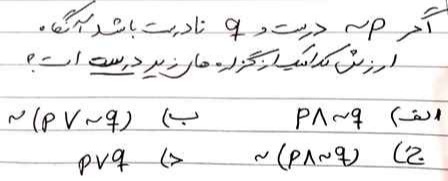 اگر ~p درست و q نادرست باشد آنگاه
ارزش کدامیک از گزاره های زیر درست است؟
الف) p∧~q ب) ~(p∨~q)
ج) ~(p∧~q) د) p∨q